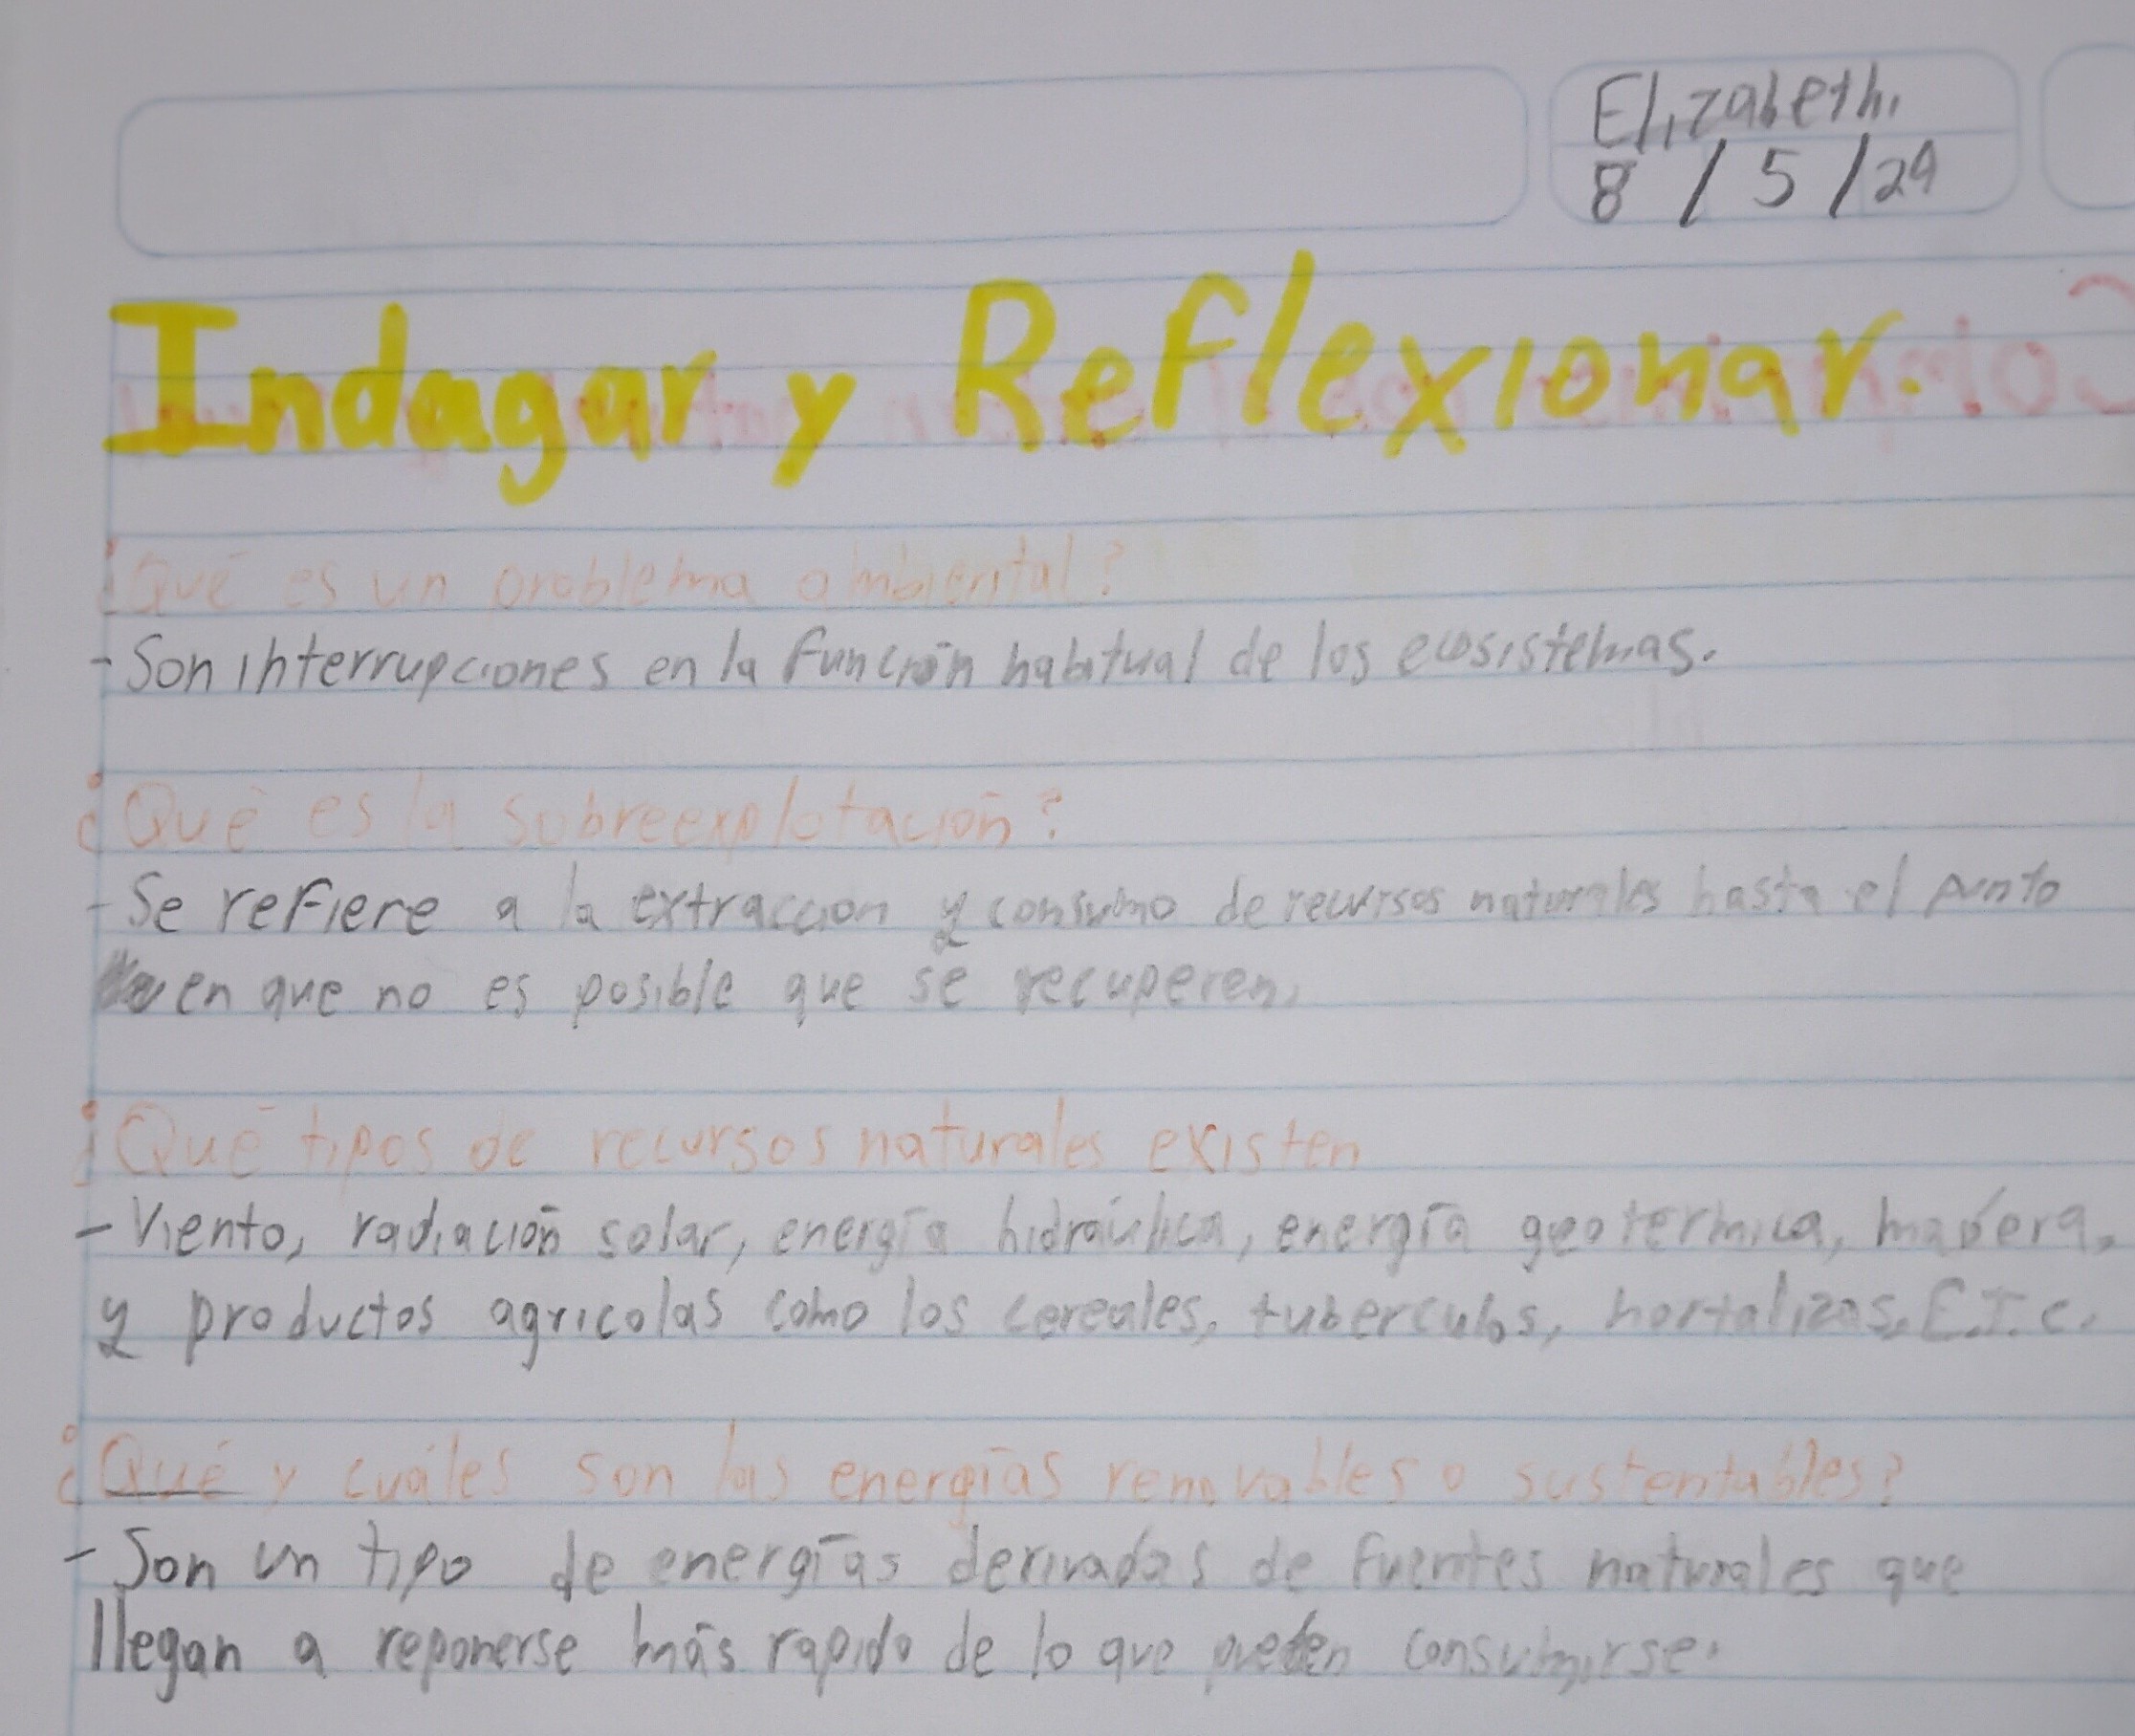 Elizabeth.
8 / 5 / 24
Indagar y Reflexionar.
¿Qué es un problema ambiental?
- Son interrupciones en la función habitual de los ecosistemas.
¿Qué es la sobreexplotación?
- Se refiere a la extraccion y consumo de recursos naturales hasta el punto
en que no es posible que se recuperen.
¿Qué tipos de recursos naturales existen
- Viento, radiación solar, energía hidráulica, energía geotermica, madera,
y productos agricolas como los cereales, tuberculos, hortalizas, E.T.C.
¿Qué y cuáles son las energías renovables o sustentables?
- Son un tipo de energías derivadas de fuentes naturales que
llegan a reponerse más rapido de lo que pueden consumirse.